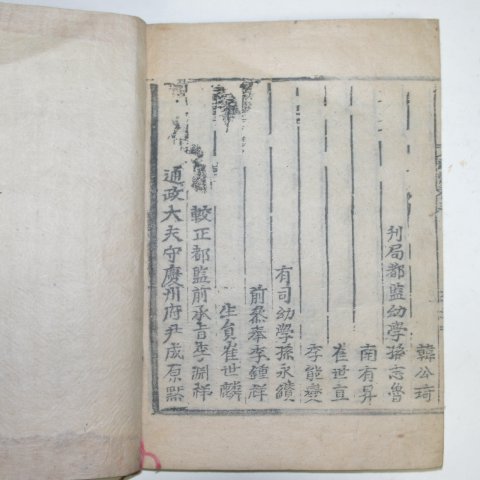 韓公琦
刊局都監幼學孫志魯
南有昇
崔世亘
李能燮
有司幼學孫永鑽
前參奉李鍾祥
生員崔世麟
較正都監前承旨李淵祥
通政大夫守慶州府尹成原默